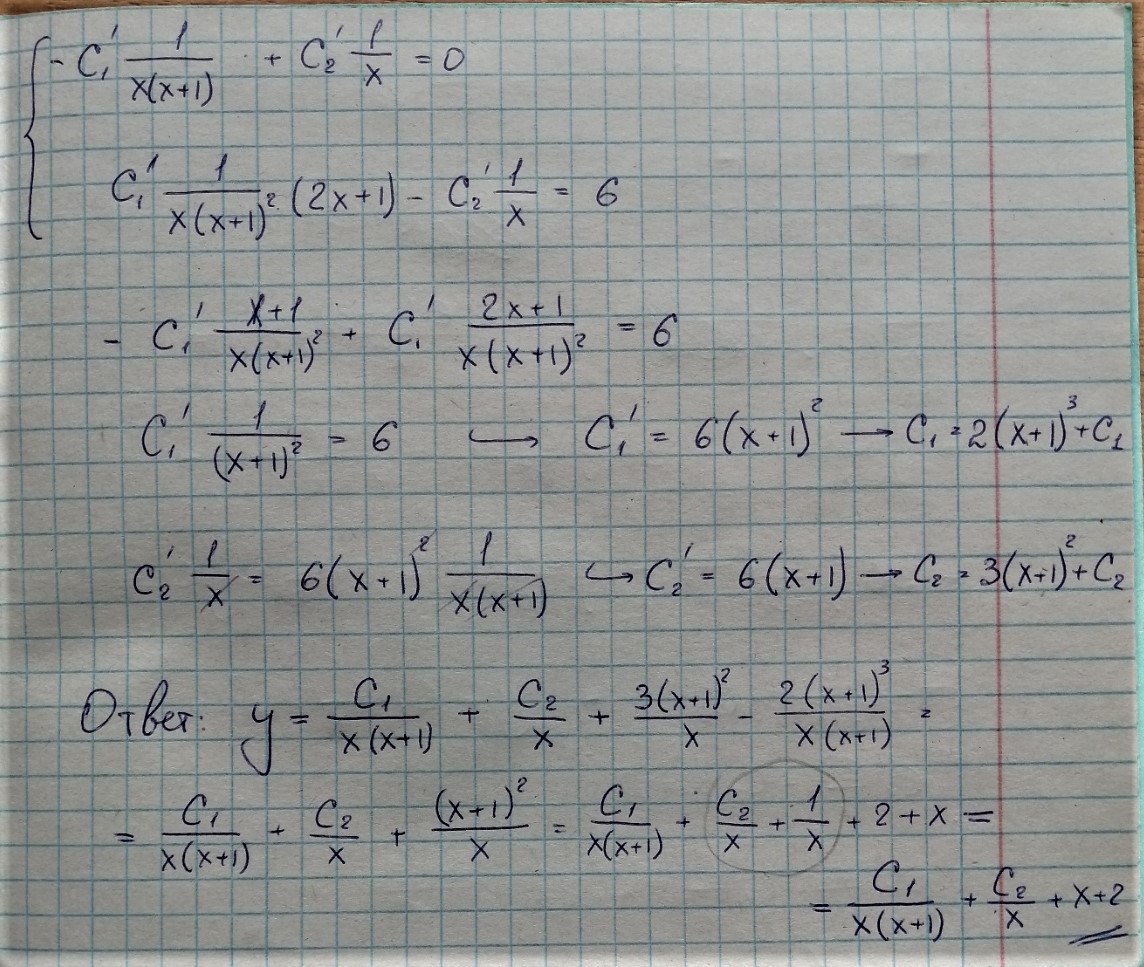 { - C₁' 1/(x(x+1)) + C₂' 1/x = 0
C₁' 1/(x(x+1)²) (2x+1) - C₂' 1/x = 6
- C₁' (x+1)/(x(x+1)²) + C₁' (2x+1)/(x(x+1)²) = 6
C₁' 1/(x+1)² = 6 ↪ C₁' = 6(x+1)² → C₁ = 2(x+1)³ + C₁
C₂' 1/x = 6(x+1)² 1/(x(x+1)) ↪ C₂' = 6(x+1) → C₂ = 3(x+1)² + C₂
Ответ: y = C₁/(x(x+1)) + C₂/x + 3(x+1)²/x - 2(x+1)³/(x(x+1)) =
= C₁/(x(x+1)) + C₂/x + (x+1)²/x = C₁/(x(x+1)) + C₂/x + 1/x + 2 + x =
= C₁/(x(x+1)) + C₂/x + x+2